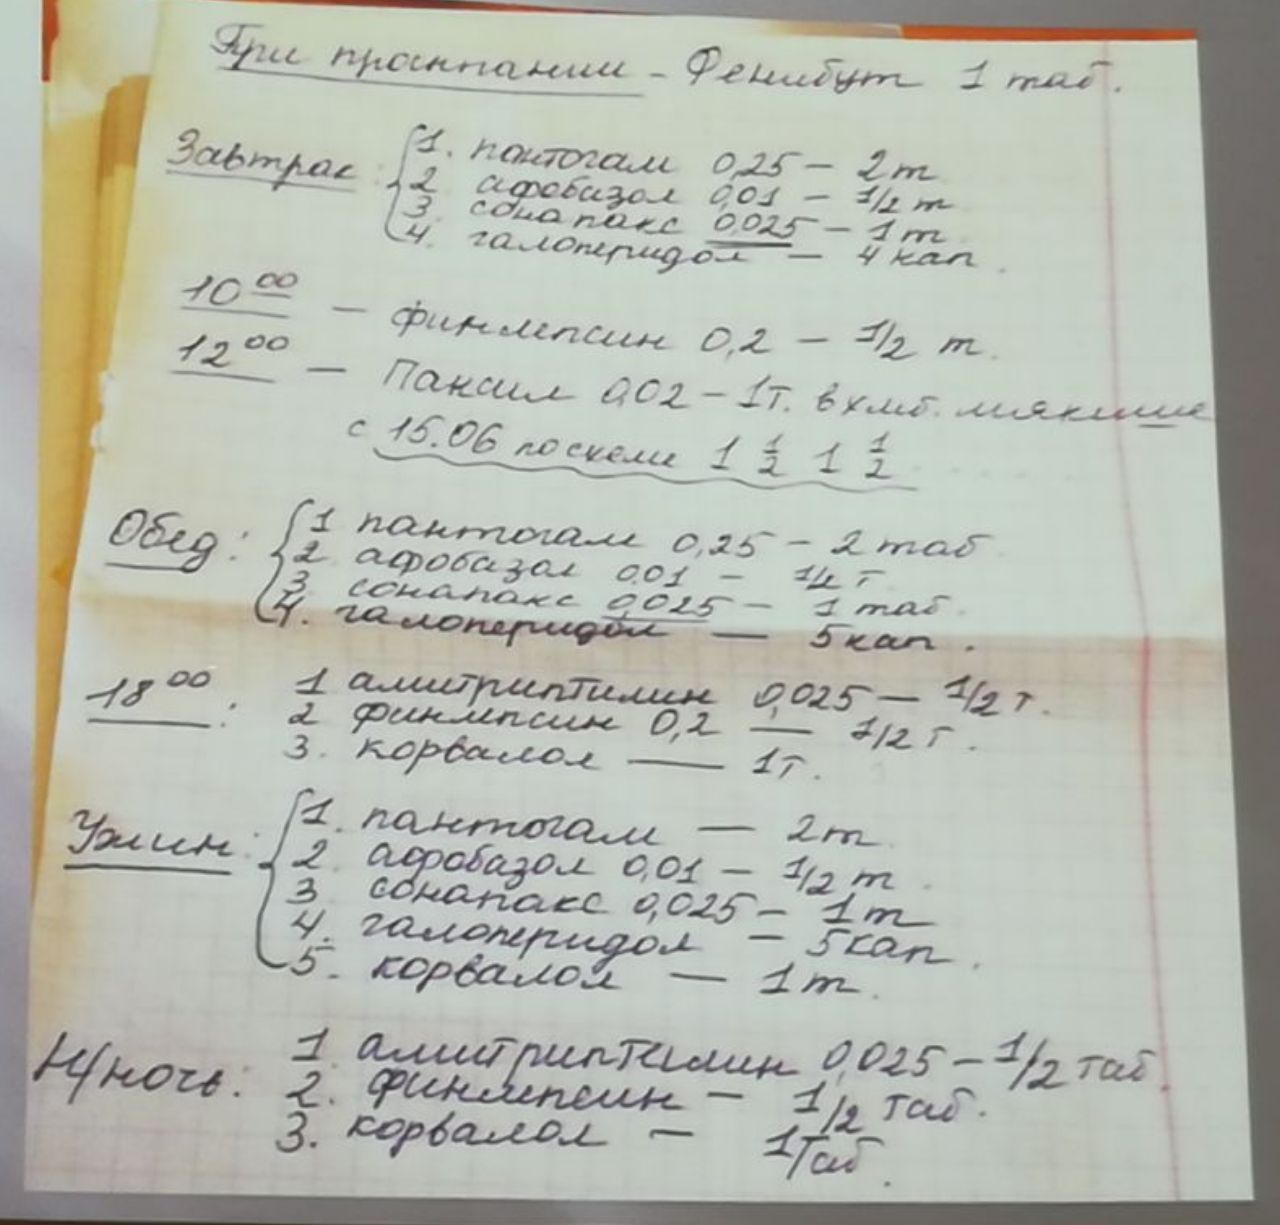 При просыпании - Фенибут 1 таб.
Завтрак: 1. пантогам 0,25 - 2т
2 афобазол 0,01 - 1/2 т
3. сонапакс 0,025 - 1т
4. галоперидол - 4 кап.
10 00 - финлепсин 0,2 - 1/2 т.
12 00 - Паксил 0,02 - 1т. в хлеб. мякише
с 15.06 по схеме 1 1/2 1 1/2
Обед: 1 пантогам 0,25 - 2 таб
2 афобазол 0,01 - 1/2 т
3. сонапакс 0,025 - 1 таб.
4. галоперидол - 5 кап.
18 00: 1 амитриптилин 0,025 - 1/2 т.
2 финлепсин 0,2 - 1/2 т.
3. корвалол - 1т.
Ужин: 1. пантогам - 2т
2. афобазол 0,01 - 1/2 т.
3 сонапакс 0,025 - 1т
4. галоперидол - 5 кап.
5. корвалол - 1т.
Н/ночь: 1 амитриптилин 0,025 - 1/2 таб.
2. финлепсин - 1/2 таб.
3. корвалол - 1 таб.